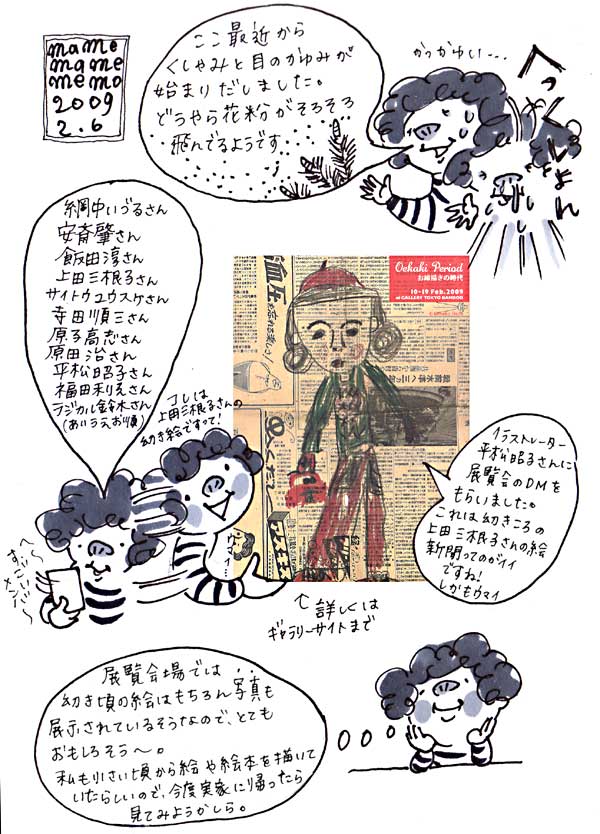 mame
mame
memo
2009
2.6
ここ最近から
くしゃみと目のかゆみが
始まりだしました。
どうやら花粉がそろそろ
飛んでるようです
かっかゆい…
へっくしょん
網中いづるさん
安斎肇さん
飯田淳さん
上田三根子さん
サイトウユウスケさん
寺田順三さん
原子高志さん
原田治さん
平松昭子さん
福田利之さん
ラジカル鈴木さん
(あいうえお順)
コレは
上田三根子さんの
幼き絵ですって!
へ〜
すっごいメンバー
ウマイ…
Oekaki Period
お絵描きの時代
10-19 Feb.2009
at GALLERY TOKYO BAMBOO
イラストレーター
平松昭子さんに
展覧会のDMを
もらいました。
これは幼きころの
上田三根子さんの絵
新聞ってのがイイ
ですね!
しかもウマイ
↑詳しくは
ギャラリーサイトまで
展覧会場では
幼き頃の絵はもちろん写真も
展示されているそうなので、とても
おもしろそう〜。
私も小さい頃から絵や絵本を描いて
いたらしいので、今度実家に帰ったら
見てみようかしら。